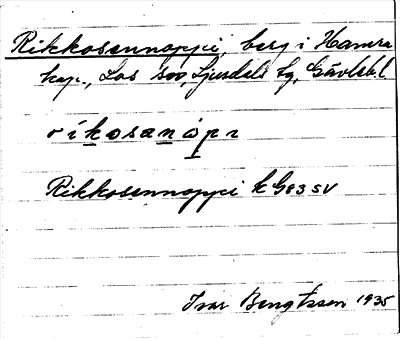 Rikkosennoppi, berg i Hamra
kap., Los sn, Ljusdals tg, Gävlebl.
ríkosanòpı
Rikkosennoppi k G83 SV
Ivar Bengtsson 1935